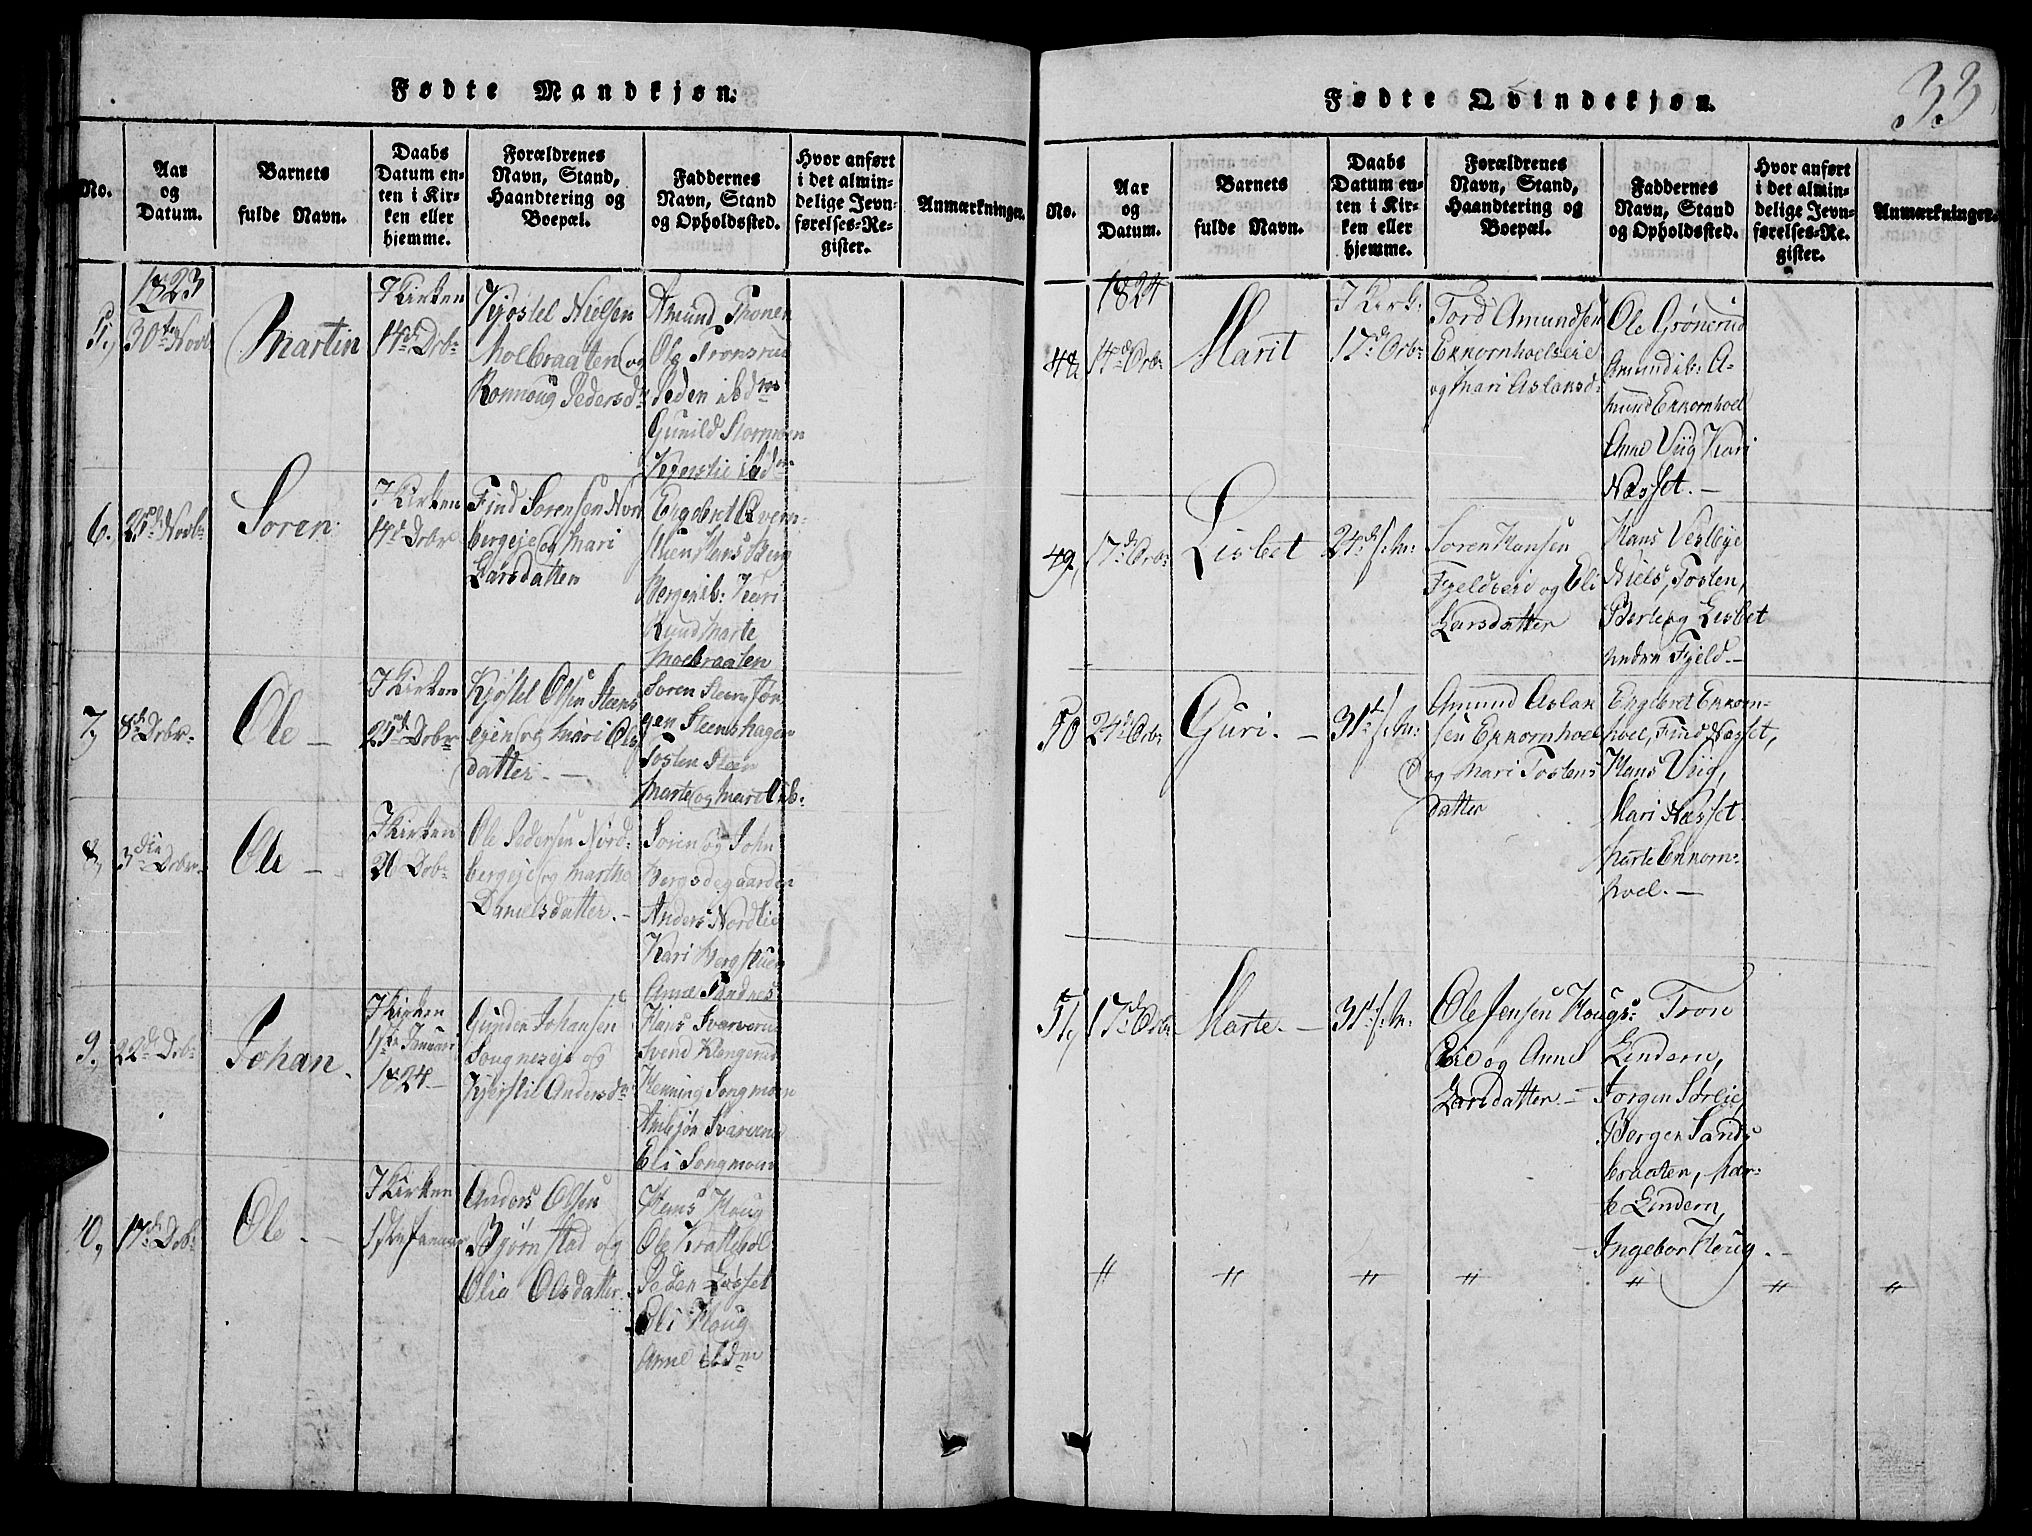 Fødte Mandkjøn.
No.
Aar
og
Datum.
Barnets
fulde Navn.
Daabs
Datum en-
ten i Kir-
ken eller
hjemme.
Forældrenes
Navn, Stand,
Haandtering og
Boepæl.
Faddernes
Navn, Stand
og Opholdssted.
Hvor anført
i det almin-
delige Jevn-
førelses-Re-
gister.
Anmærkninger.
1823
5,
30te Novb
Martin
I Kirken
14d Decbr
Kjøstel Nielsen
Molbraaten og
Ronnoug Pedersd
Amund Thonen
Ole Tronsrud
Peden ibdm
Gunild Stormoen
Kjerstie ibdm
6.
25d Novb
Soren
I Kirken
14d Decbr
Find Sorensen Nor
bergeje og Mari
Larsdatten
Engebret Evens
Hans Berg
Bergen ib: Kari
Ruud Marte
Moebraaten
7,
8d Decbr
Ole
I Kirken
25d Decbr
Kjøstel Olsen Steens
ejen og Mari Ols
datter
Soren Steens Jør
gen Steenshagen
Tosten Steen
Marte og Mari ib:
8,
3die Decbr
Ole
I Kirken
26 Decb
Ole Pedersen Nord
bergeje og Marthe
Danielsdatter.
Soren og John
Bergsdegaarden
Anders Nordlie
Kari Bergstuen
Anne Sandnes
9,
22d Decb
Johan
I Kirken
1ste Januari
1824
Gunder Johansen
Songneseje og
Kjerstil Andersd
Hans Svarverud
Svend Klengerud
Henning Songmoen
Ambjør Svarverud
Eli Songmoen
10,
17d Decb
Ole
I Kirken
1ste Januar
Anders Olsen
Bjørnstad og
Olia Olsdatter
Hans Houg
Ole Krattebøl
Peden Løsset
Eli Houg
Anne ibdm
Fødte Qvindekjøn.
33
No.
Aar
og
Datum.
Barnets
fulde Navn.
Daabs
Datum en-
ten i Kir-
ken eller
hjemme.
Forældrenes
Navn, Stand,
Haandtering og
Boepæl.
Faddernes
Navn, Stand
og Opholdssted.
Hvor anført
i det almin-
delige Jevn-
førelses-Re-
gister.
Anmærkninger.
1824
48
14d Octb
Marit
I Kirk:
17d Octb
Tord Amundsen
Ekornhoelseie
og Mari Aslaksd
Ole Grønerud
Amund ib: A-
mund Ekornhoel
Anne Viig Kari
Næsset.
49,
17d Octb
Lisbet
24d s: M:
Soren Hansen
Fjeldseie og Eli
Larsdatter
Hans Vestbye
Niels, Tosten,
Berte og Lisbet
nedre Fjeld
50
24d Octb
Guri.
31t s: M:
Amund Aslak
sen Ekornhoel
og Mari Tostens
datter
Engebret Ekorn-
hoel, Find Næsset,
Hans Viig,
Mari Næsset
Marte Ekorn-
hoel.
51,
17d Octb
Marte.
31t s: M:
Ole Jensen Hougs
eie og Anne
Larsdatter
Tron
Lindern,
Jorgen Sørlie,
Borgen Sands
braaten, Mar-
te Lindern,
Ingebor Houg.
" " " " " " "